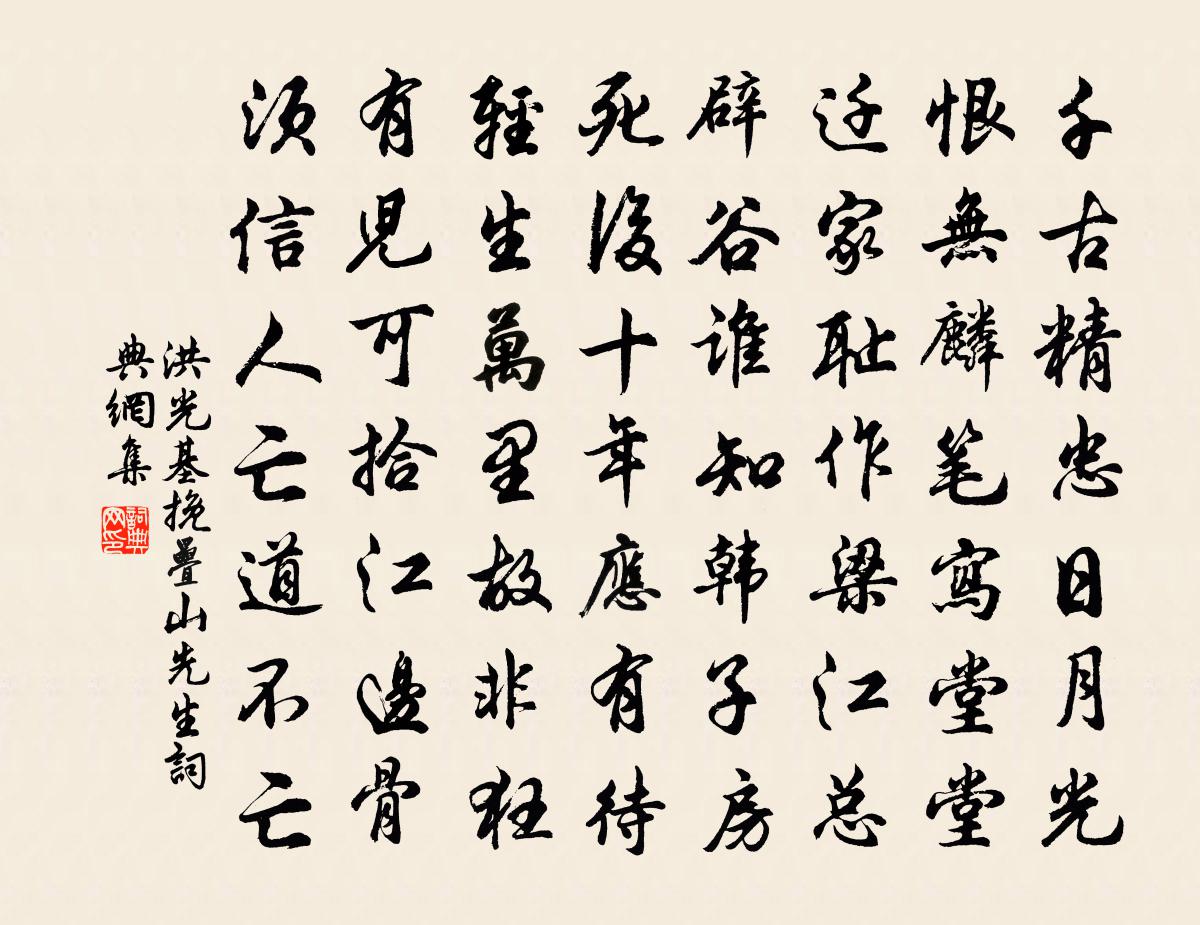 千古精忠日月光
恨無麟笔寫堂堂
迁家耻作梁江总
辟谷谁知韩子房
死後十年應有待
輕生萬里故非狂
有児可拾江邊骨
须信人亡道不亡
洪光基挽疊山先生詞
典網集
詞典
网印